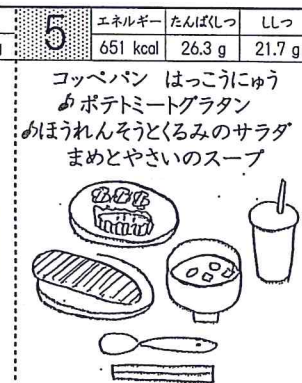 5 エネルギー たんぱくしつ ししつ
651 kcal 26.3 g 21.7 g
コッペパン はっこうにゅう
ポテトミートグラタン
ほうれんそうとくるみのサラダ
まめとやさいのスープ